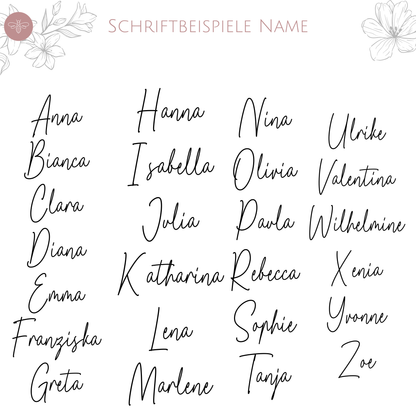 SCHRIFTBEISPIELE NAME
Anna
Bianca
Clara
Diana
Emma
Franziska
Greta
Hanna
Isabella
Julia
Katharina
Lena
Marlene
Nina
Olivia
Paula
Rebecca
Sophie
Tanja
Ulrike
Valentina
Wilhelmine
Xenia
Yvonne
Zoe